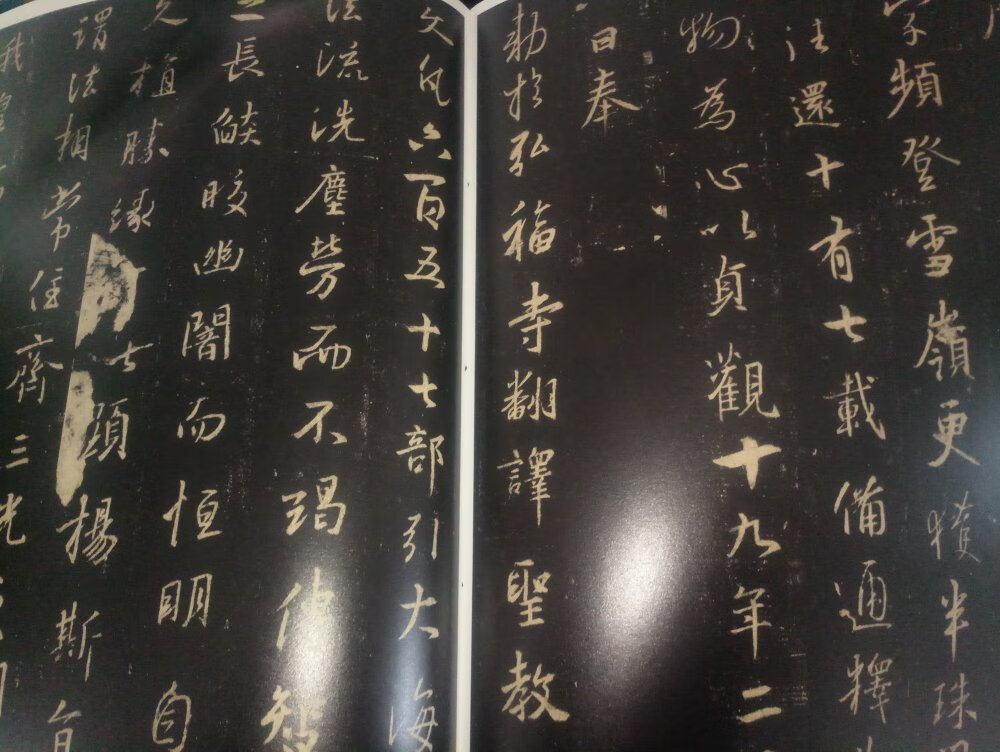 頻登雪嶺更獲半珠
往還十有七載備通釋
物為心以貞觀十九年二
日奉
勅於弘福寺翻譯聖教
文凡六百五十七部引大海
法流洗塵勞而不竭傳智
長燄皎幽闇而恒明自
久植勝緣以顯揚斯旨
謂法相常住齊三光
我皇